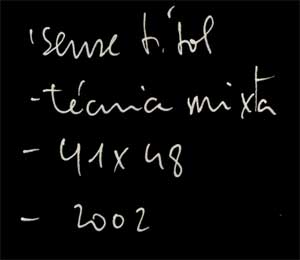 'sense títol
- tècnia mixta
- 41 x 48
- 2002